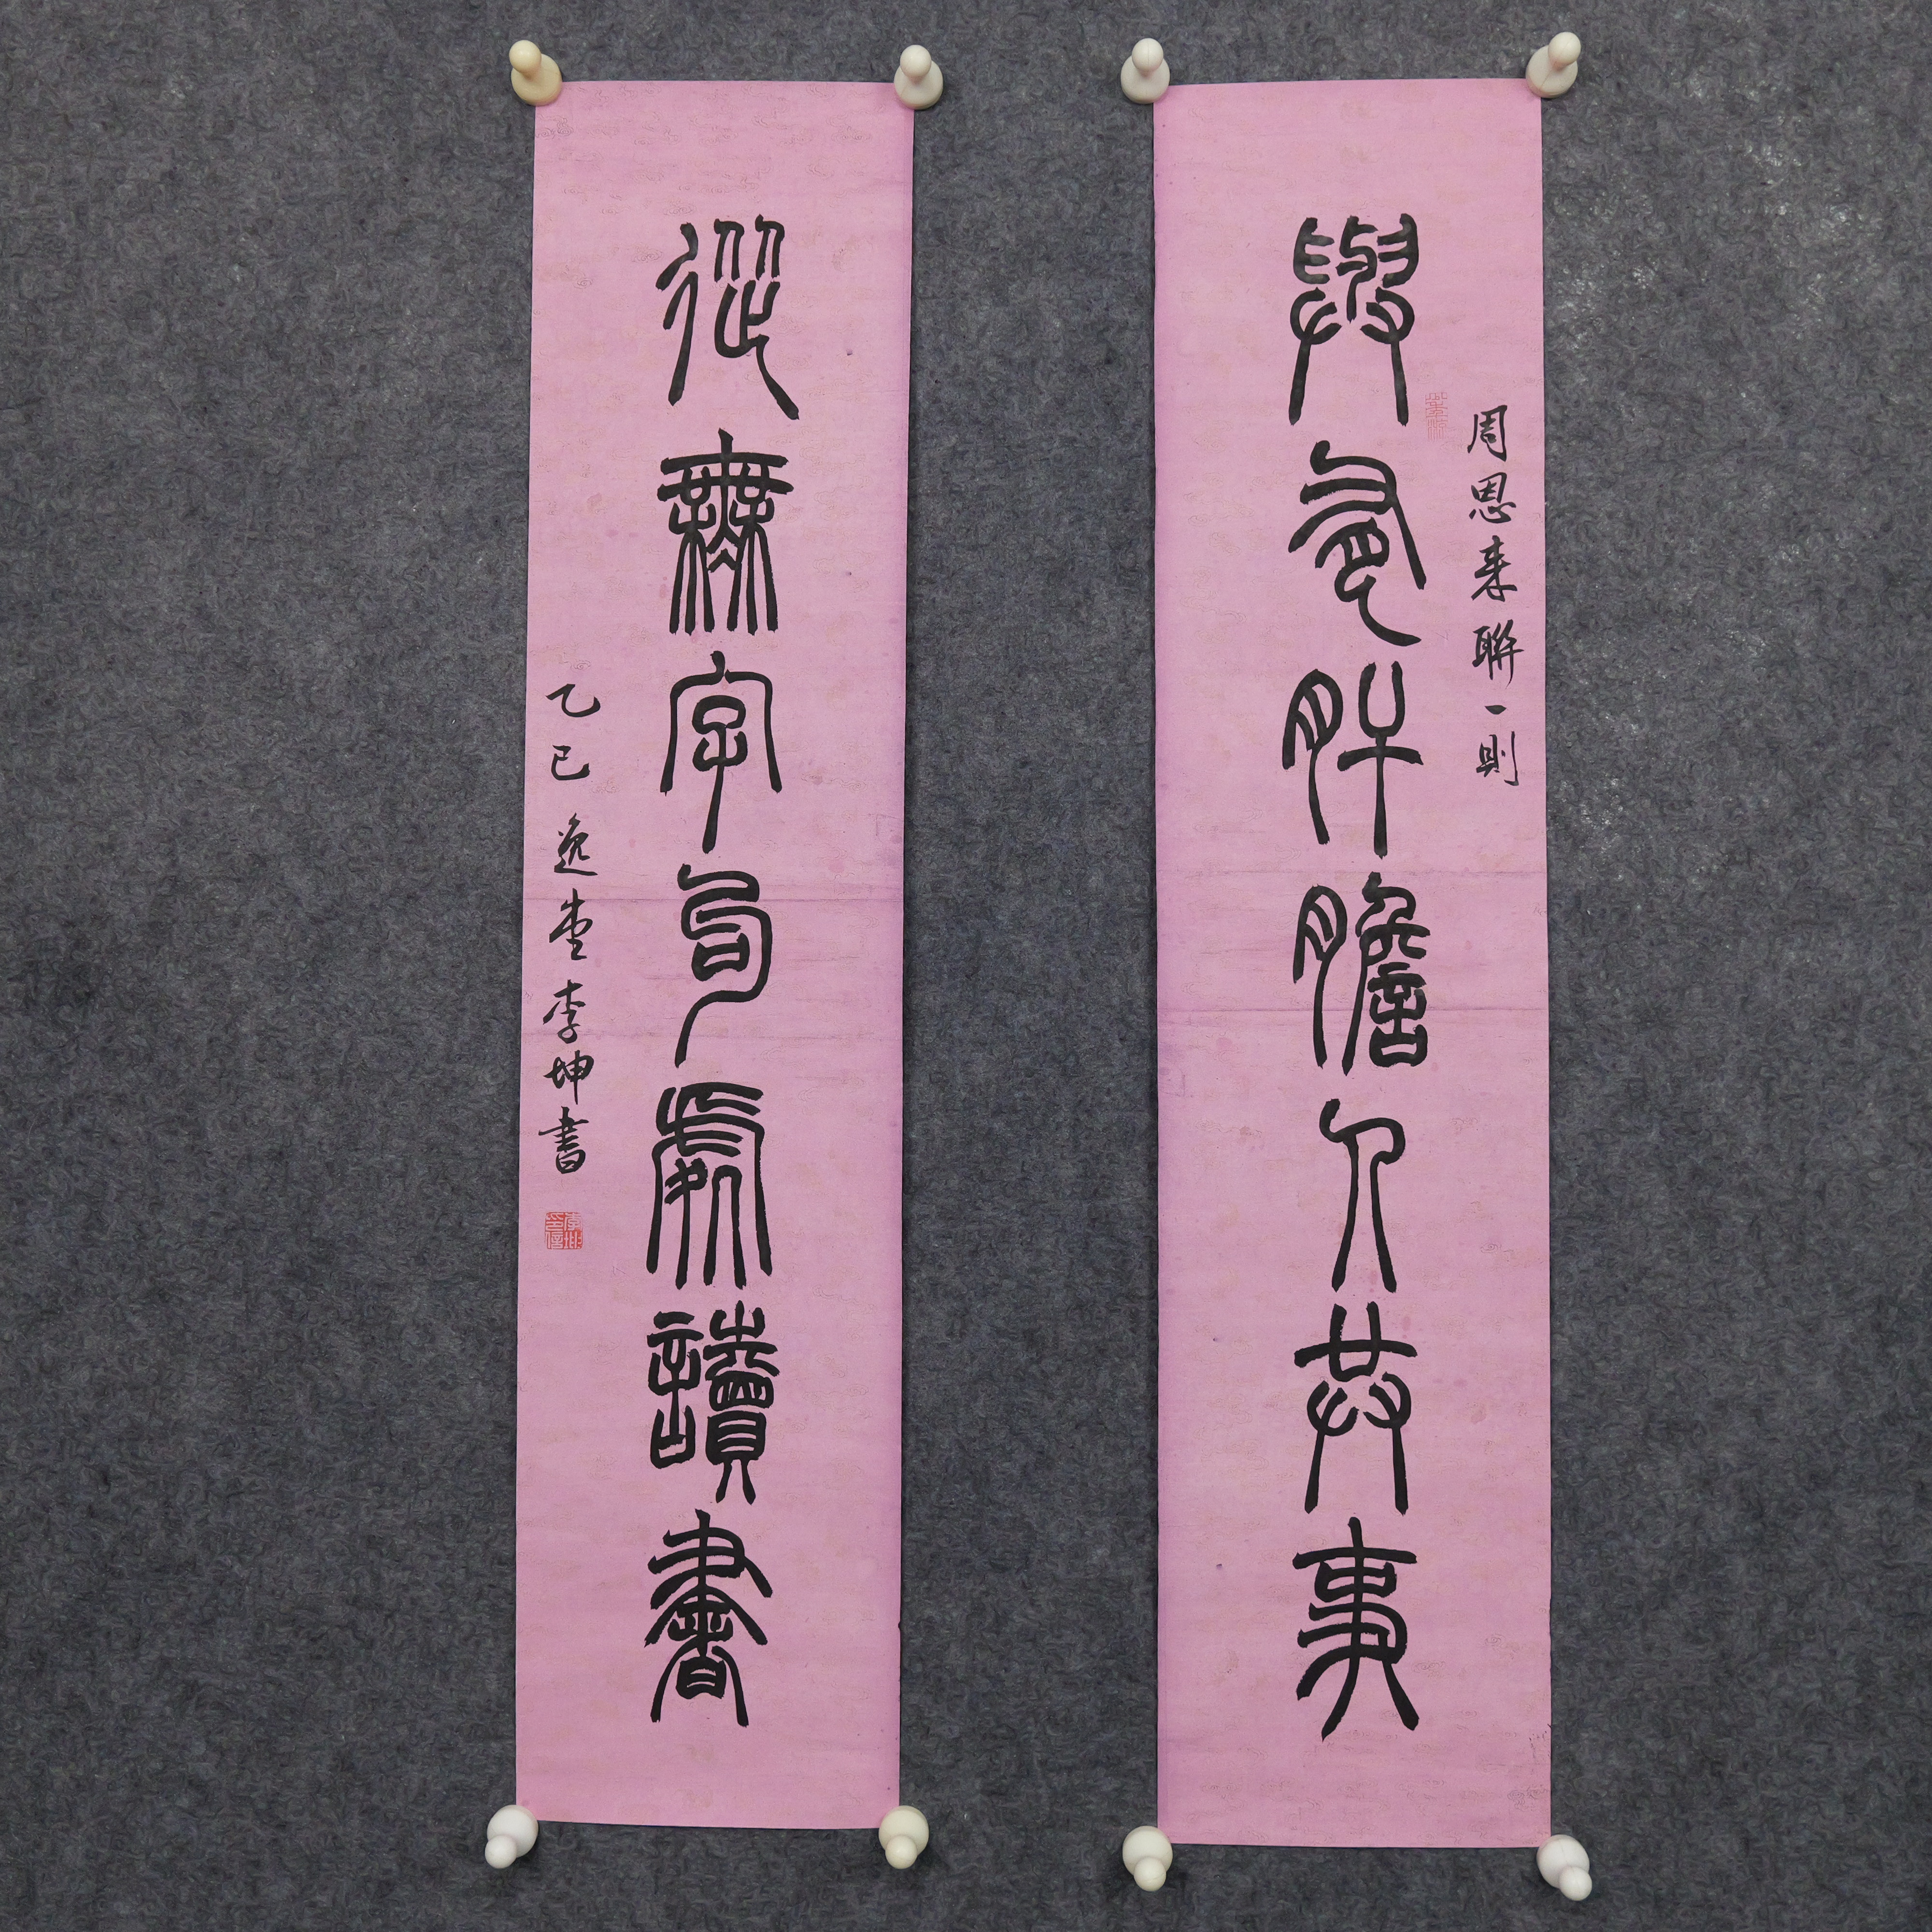 與有肝膽人共事
周恩来聯一則
從無字句處讀書
乙巳 逸堂 李坤書